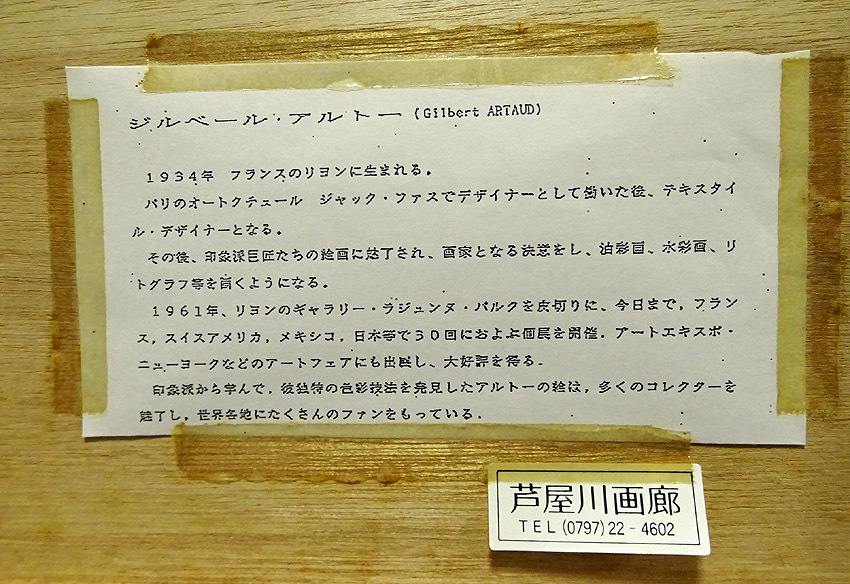 ジルベール・アルトー (Gilbert ARTAUD)
1934年 フランスのリヨンに生まれる。
パリのオートクチュール ジャック・ファスでデザイナーとして働いた後、テキスタイ
ル・デザイナーとなる。
その後、印象派巨匠たちの絵画に魅了され、画家となる決意をし、油彩画、水彩画、リ
トグラフ等を描くようになる。
1961年、リヨンのギャラリー・ラジュンヌ・パルクを皮切りに、今日まで，フラン
ス，スイスアメリカ，メキシコ，日本等で30回におよぶ個展を開催．アートエキスポ・
ニューヨークなどのアートフェアにも出展し、大好評を得る．
印象派から学んで，彼独特の色彩技法を発見したアルトーの絵は，多くのコレクターを
魅了し，世界各地にたくさんのファンをもっている．
芦屋川画廊
TEL (0797) 22-4602